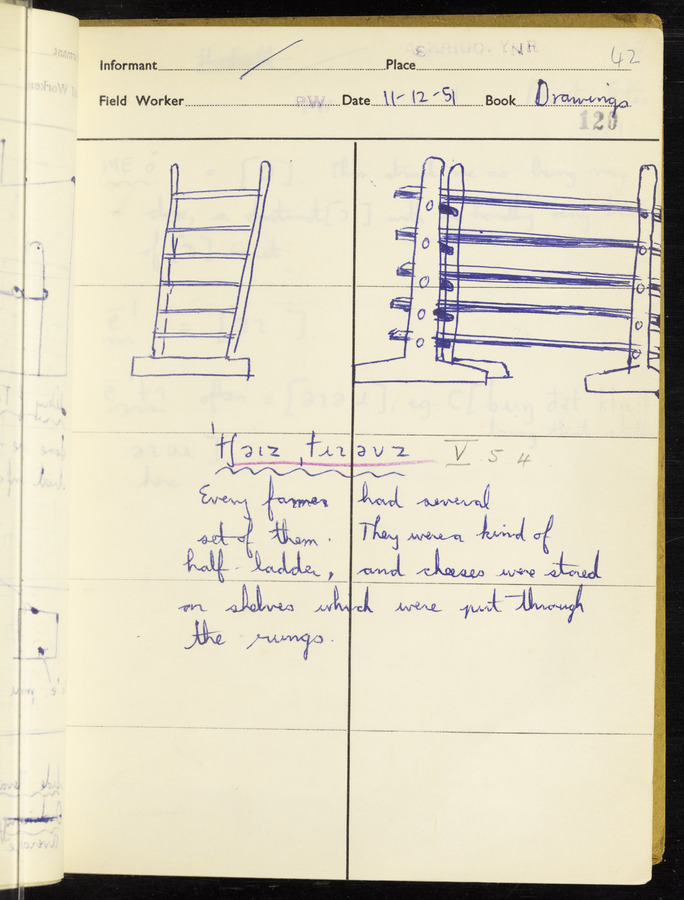 Informant Place 42
Field Worker Date 11-12-51 Book Drawings
120
V 5 4
Every farmer had several
set of them. They were a kind of
half-ladder, and cheeses were stored
on shelves which were put through
the rungs.